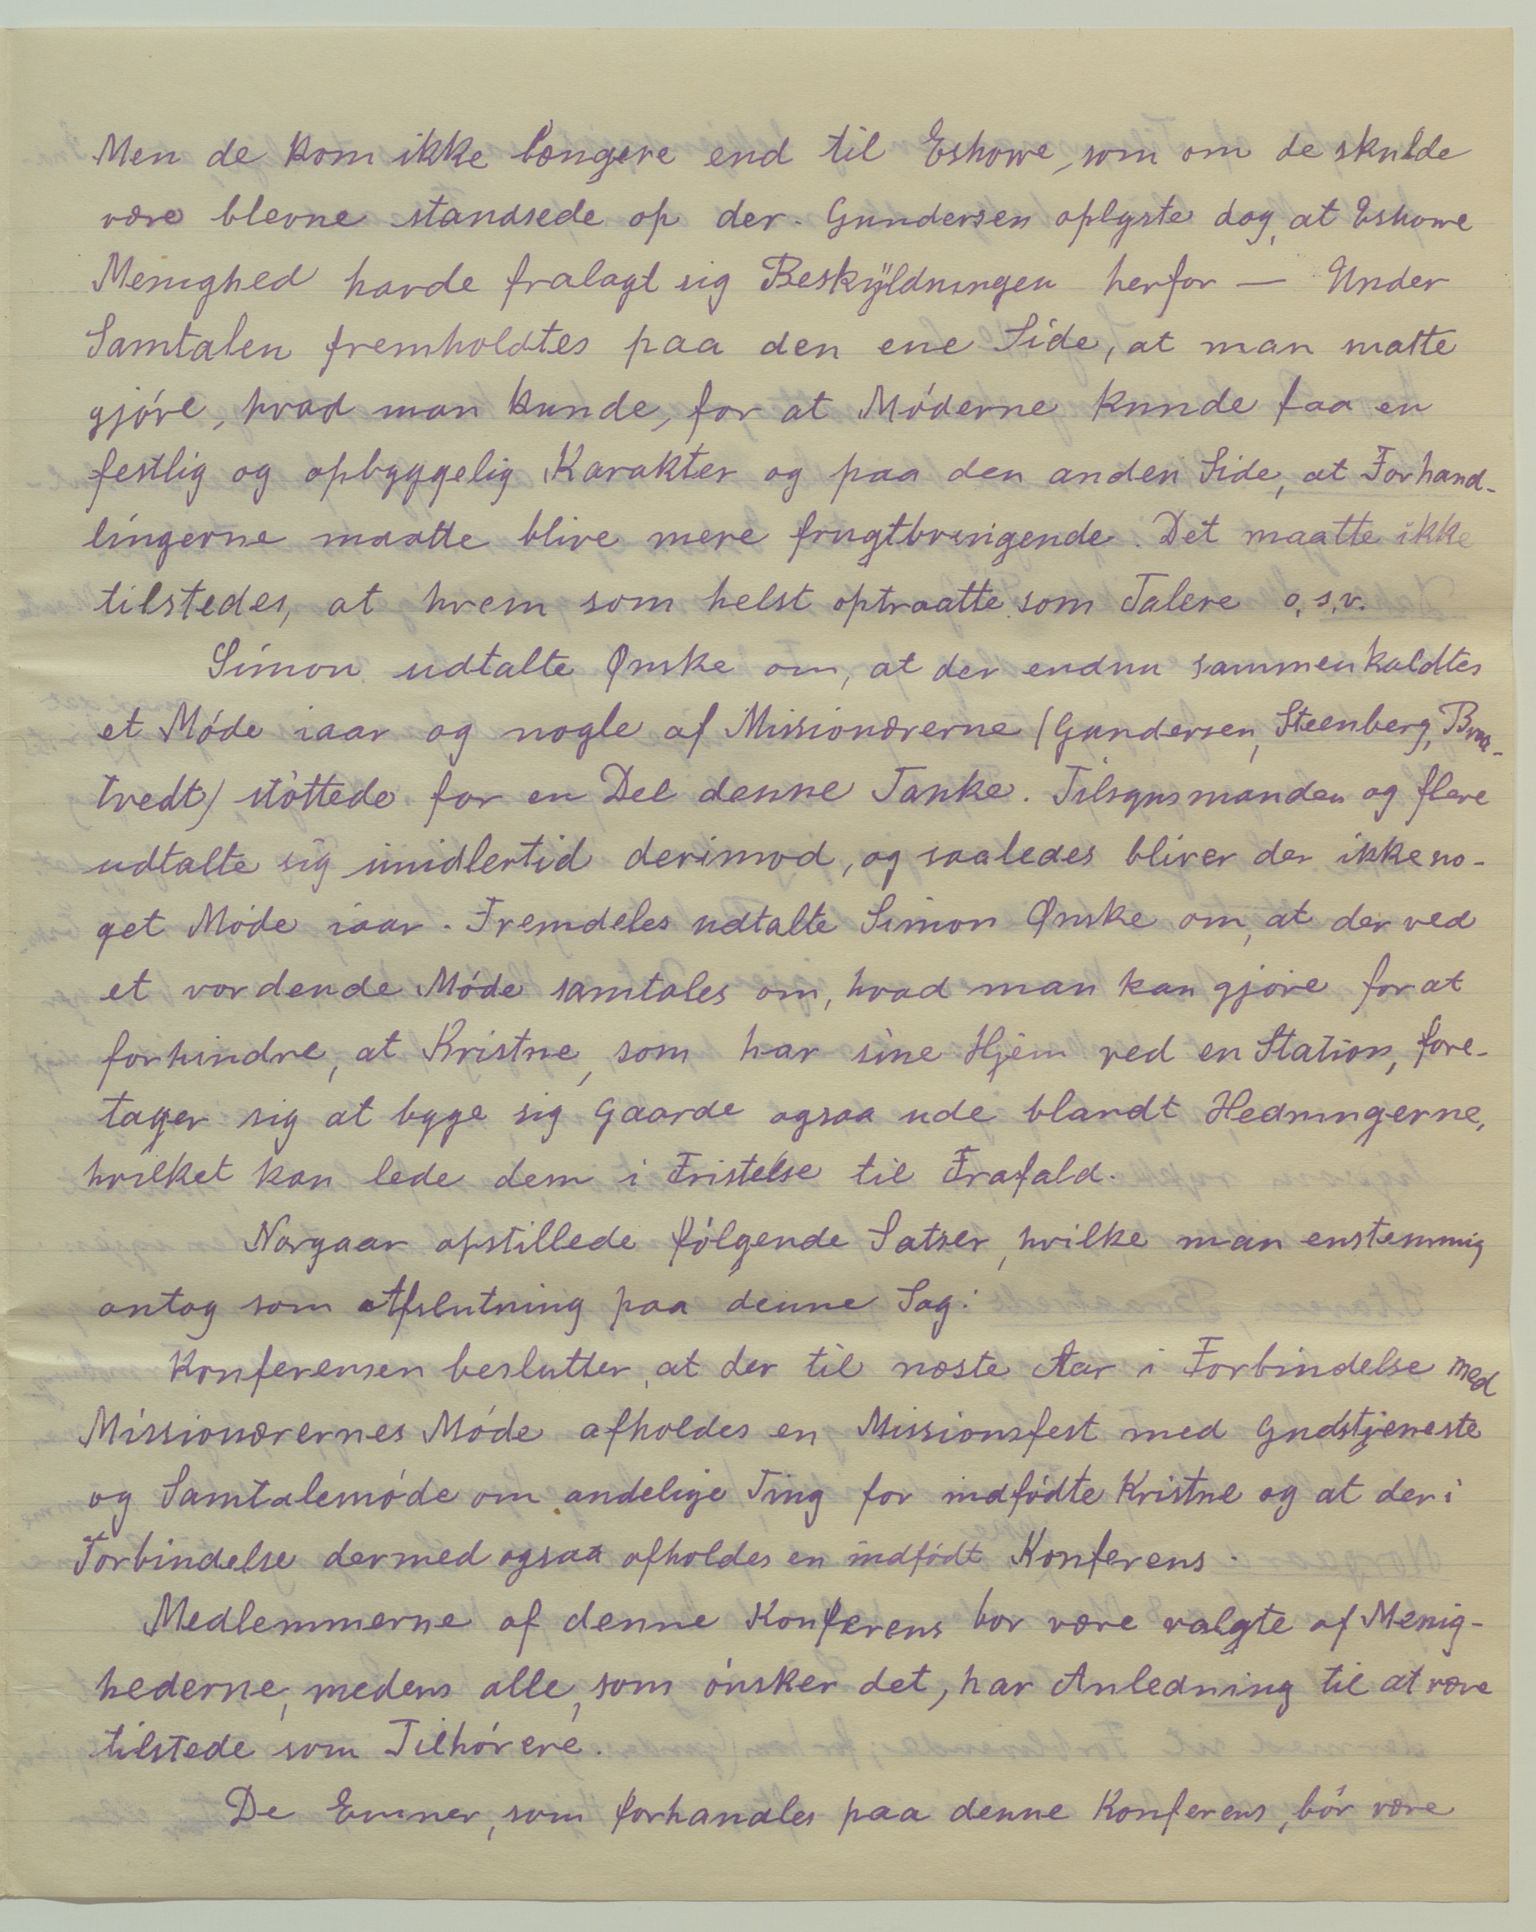 Men de kom ikke længere end til Eshowe, som om de skulde
være blevne standsede op der. Gundersen oplyste dog, at Eshowe
Menighed havde fralagt sig Beskyldningen herfor — Under
Samtalen fremholdtes paa den ene Side, at man matte
gjóre, hvad man kunde, for at Móderne kunde faa en
festlig og opbyggelig Karakter og paa den anden Side, at Forhand-
lingerne maatte blive mere frugtbringende. Det maatte ikke
tilstedes, at hvem som helst optraatte som Talere o.s.v.
Simon udtalte Ønske om, at der endnu sammenkaldtes
et Móde iaar og nogle af Missionærerne (Gundersen, Steenberg, Braa-
tvedt) stóttede for en Del denne Tanke. Tilsynsmanden og flere
udtalte sig imidlertid derimod, og saaledes bliver der ikke no-
get Móde iaar. Fremdeles udtalte Simon Ønske om, at der ved
et vordende Móde samtales om, hvad man kan gjóre for at
forhindre, at Kristne, som har sine Hjem ved en Station, fore-
tager sig at bygge sig Gaarde ogsaa ude blandt Hedningerne,
hvilket kan lede dem i Fristelse til Frafald.
Norgaar opstillede fólgende Satser, hvilke man enstemmig
antog som Afslutning paa denne Sag:
Konferensen beslutter, at der til næste Aar i Forbindelse med
Missionærernes Móde afholdes en Missionsfest med Gudstjeneste
og Samtalemóde om andelige Ting for indfódte Kristne og at der i
Forbindelse dermed ogsaa afholdes en indfódt Konferens.
Medlemmerne af denne Konferens bor være valgte af Menig-
hederne, medens alle, som ónsker det, har Anledning til at være
tilstede som Tilhórere.
De Emner, som forhandles paa denne Konferens, bór være